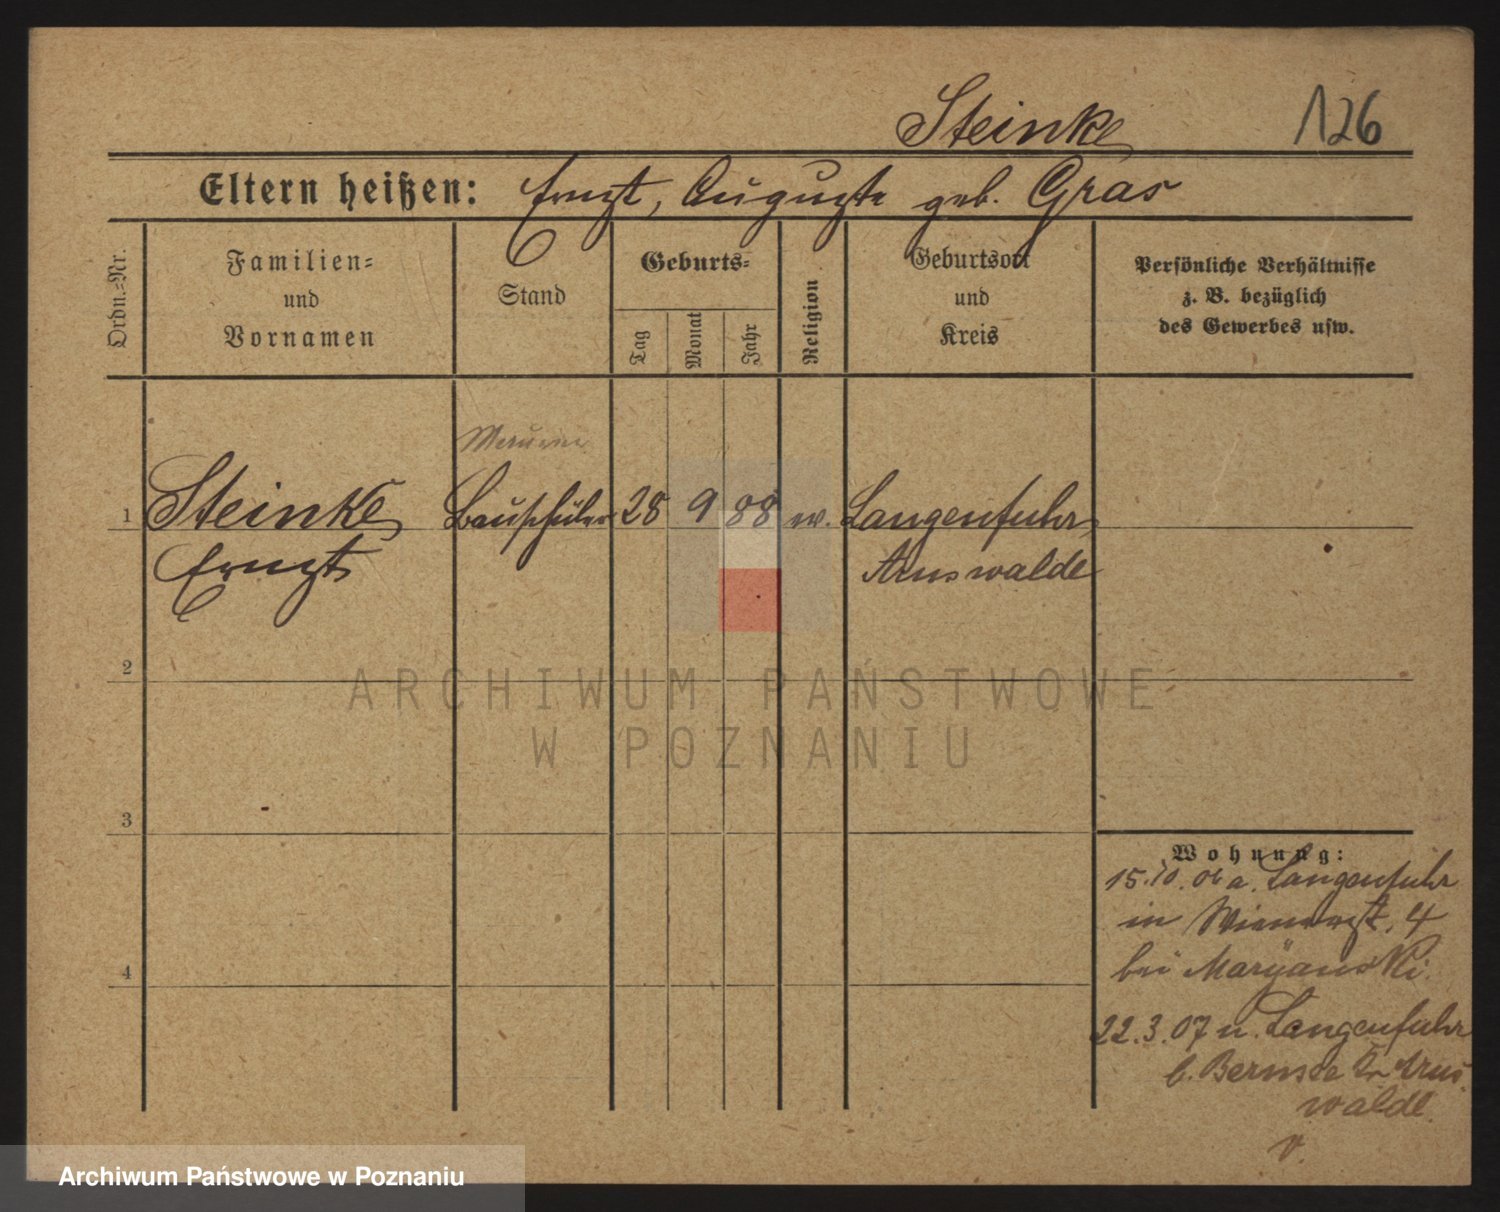 Steinke
126
Eltern heißen: Ernst, Auguste geb. Gras
Ordn.=Nr.
Familien=
und
Vornamen
Stand
Geburts=
Tag
Monat
Jahr
Religion
Geburtsort
und
Kreis
Persönliche Verhältnisse
z. B. bezüglich
des Gewerbes usw.
Maurer
1 Steinke Bauschüler 28 9 88 ev. Langenfuhr,
Ernst Arnswalde
2
ARCHIWUM PAŃSTWOWE
W POZNANIU
3
4
Wohnung:
15.10.06 a. Langenfuhr
in Wienerst. 4
bei Maryanski.
22.3.07 n. Langenfuhr
b. Kr Arns
walde.
v.
Archiwum Państwowe w Poznaniu